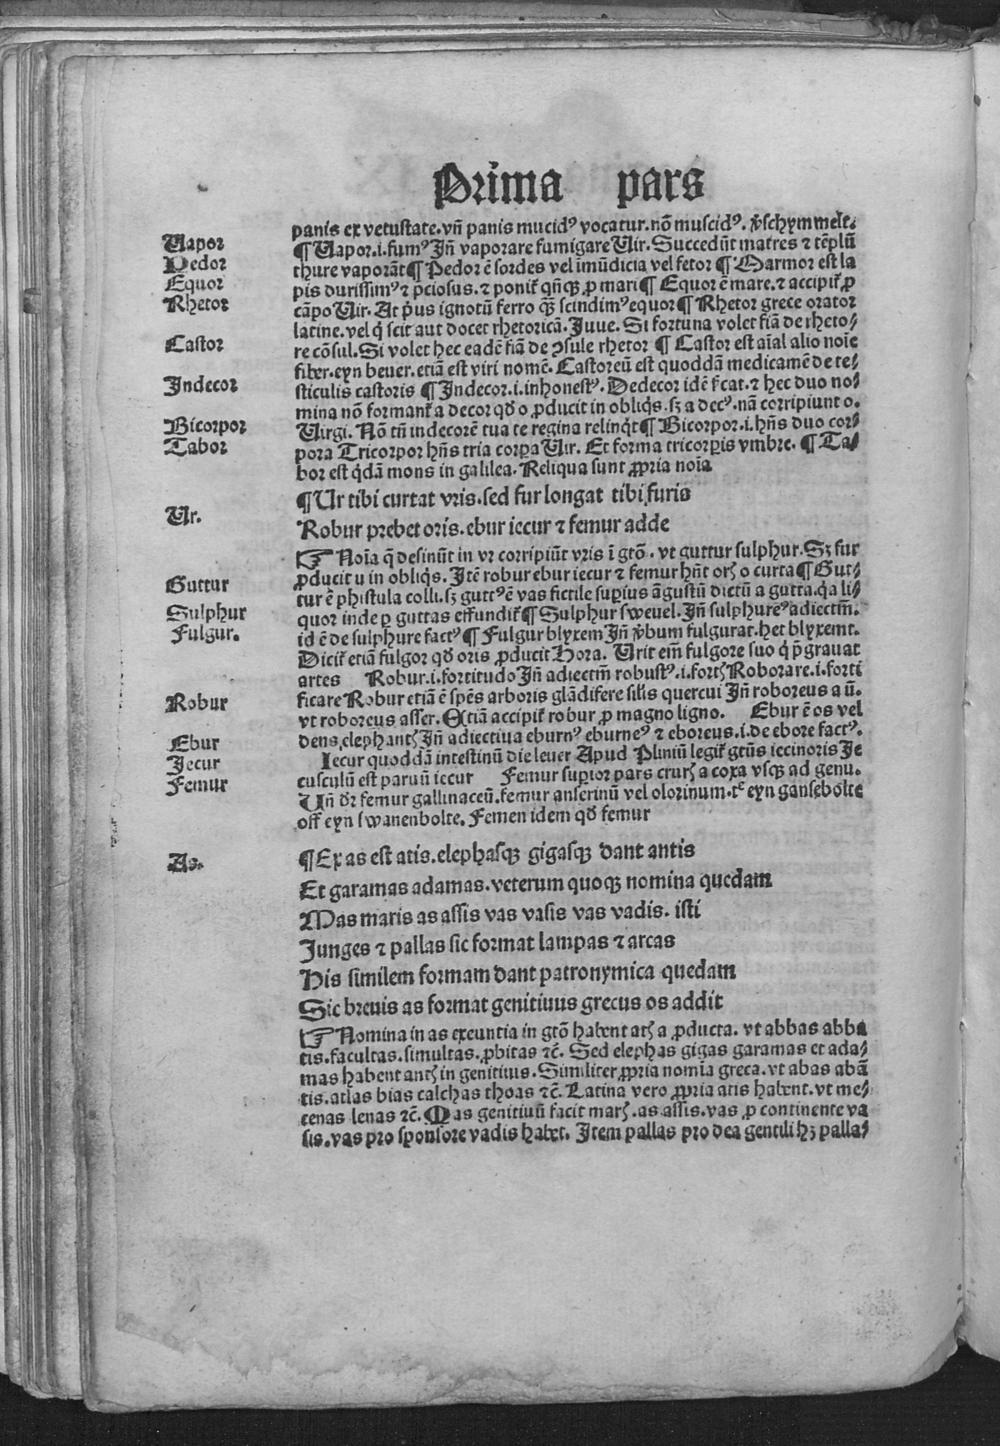 Prima pars
panis ex vetustate. vñ panis mucidꝰ vocatur. nõ muscidꝰ. v̾schymmelt.
Uapor
¶ Uapor .i. fumꝰ Jñ vaporare fumigare Uir. Succedũt matres ⁊ tẽplũ
Pedor
thure vaporãt ¶ Pedor ẽ sordes vel imũdicia vel fetor ¶ Marmor est la
Equor
pis durissimꝰ ⁊ p̃ciosus. ⁊ ponit᷑ qñqꝫ ꝓ mari ¶ Equor ẽ mare. ⁊ accipit᷑ ꝓ
Rhetor
cãpo Uir. At p̾us ignotũ ferro qꝫ scindimꝰ equor ¶ Rhetor grece orator
latine. vel q̇ scit aut docet rhetoricã. Juue. Si fortuna volet fiã de rheto⸗
Castor
re cõsul. Si volet hec eadẽ fiã de ꝯsule rhetor ¶ Castor est aĩal alio noĩe
fiber. eyn bever. etiã est viri nomẽ. Castoreũ est quoddã medicamẽ de te⸗
Indecor
sticulis castoris ¶ Jndecor .i. inhonestꝰ. Dedecor idẽ s̃cat. ⁊ hec duo no⸗
mina nõ formant᷑ a decor qđ o ꝓducit in obliq̇s. sꝫ a decꝰ. nã corripiunt o.
Bicorpor
Uirgi. Nõ tñ indecorẽ tua te regina relinq̇t ¶ Bicorpor .i. hñs duo cor⸗
Tabor
pora Tricorpor hñs tria corꝑa Uir. Et forma tricorꝑis vmbre. ¶ Ta⸗
bor est q̇dã mons in galilea. Reliqua sunt ꝓpria noĩa
¶ Ur tibi curtat vris. sed fur longat tibi furis
Ur.
Robur prebet oris. ebur iecur ⁊ femur adde
☞ Noĩa q̃ desinũt in vr corripiũt vris ĩ gtõ. vt guttur sulphur. Sꝫ fur
ꝓducit u in obliq̇s. Jtẽ robur ebur iecur ⁊ femur hñt orꝭ o curta ¶ Gut⸗
Guttur
tur ẽ phistula colli. sꝫ guttꝰ ẽ vas fictile suꝑius ãgustũ dictũ a gutta. q̃a li⸗
Sulphur
quor inde ꝑ guttas effundit᷑ ¶ Sulphur swevel. Jñ sulphureꝰ adiectiũ.
Fulgur.
id ẽ de sulphure factꝰ ¶ Fulgur blyxem Jñ v̾bum fulgurat. het blyxemt.
Dicit᷑ etiã fulgor qđ oris ꝓducit Hora. Urit eĩm fulgore suo q̇ p̃grauat
artes Robur .i. fortitudo Jñ adiectiũ robustꝰ .i. fortꝭ Roborare .i. forti
Robur
ficare Robur etiã ẽ spẽs arboris glãdifere silis quercui Jñ roboreus a ũ.
vt roboreus asser. Etiã accipit᷑ robur ꝓ magno ligno. Ebur ẽ os vel
Ebur
dens elephantꝭ Jñ adiectiua eburnꝰ eburneꝰ ⁊ eboreus .i. de ebore factꝰ.
Jecur
Jecur quoddã intestinũ die lever Apud Pliniũ legit᷑ gtũs iecinoris Je
Femur
cusculũ est paruũ iecur Femur suꝑior pars crurꝭ a coxa vsqꝫ ad genu.
Uñ dr̃ femur gallinaceũ. femur anserinũ vel olorinum. tᵉ eyn gansebolte
off eyn swanenbolte. Femen idem qđ femur
As.
¶ Ex as est atis. elephasqꝫ gigasqꝫ dant antis
Et garamas adamas. veterum quoqꝫ nomina quedam
Mas maris as assis vas vasis vas vadis. isti
Junges ⁊ pallas sic format lampas ⁊ arcas
His similem formam dant patronymica quedam
Sic breuis as format genitiuus grecus os addit
☞ Nomina in as exeuntia in gtõ habent atꝭ a ꝓducta. vt abbas abba
tis. facultas. simultas. ꝓbitas ⁊c̃. Sed elephas gigas garamas et ada⸗
mas habent antꝭ in genitiuo. Similiter ꝓpria nomĩa greca. vt abas abã
tis. atlas bias calchas thoas ⁊c̃. Latina vero ꝓpria atis habent. vt me⸗
cenas lenas ⁊c̃. Mas genitiuũ facit marꝭ. as assis. vas ꝓ continente va
sis. vas pro sponsore vadis habet. Item pallas pro dea gentili hꝫ palla⸗